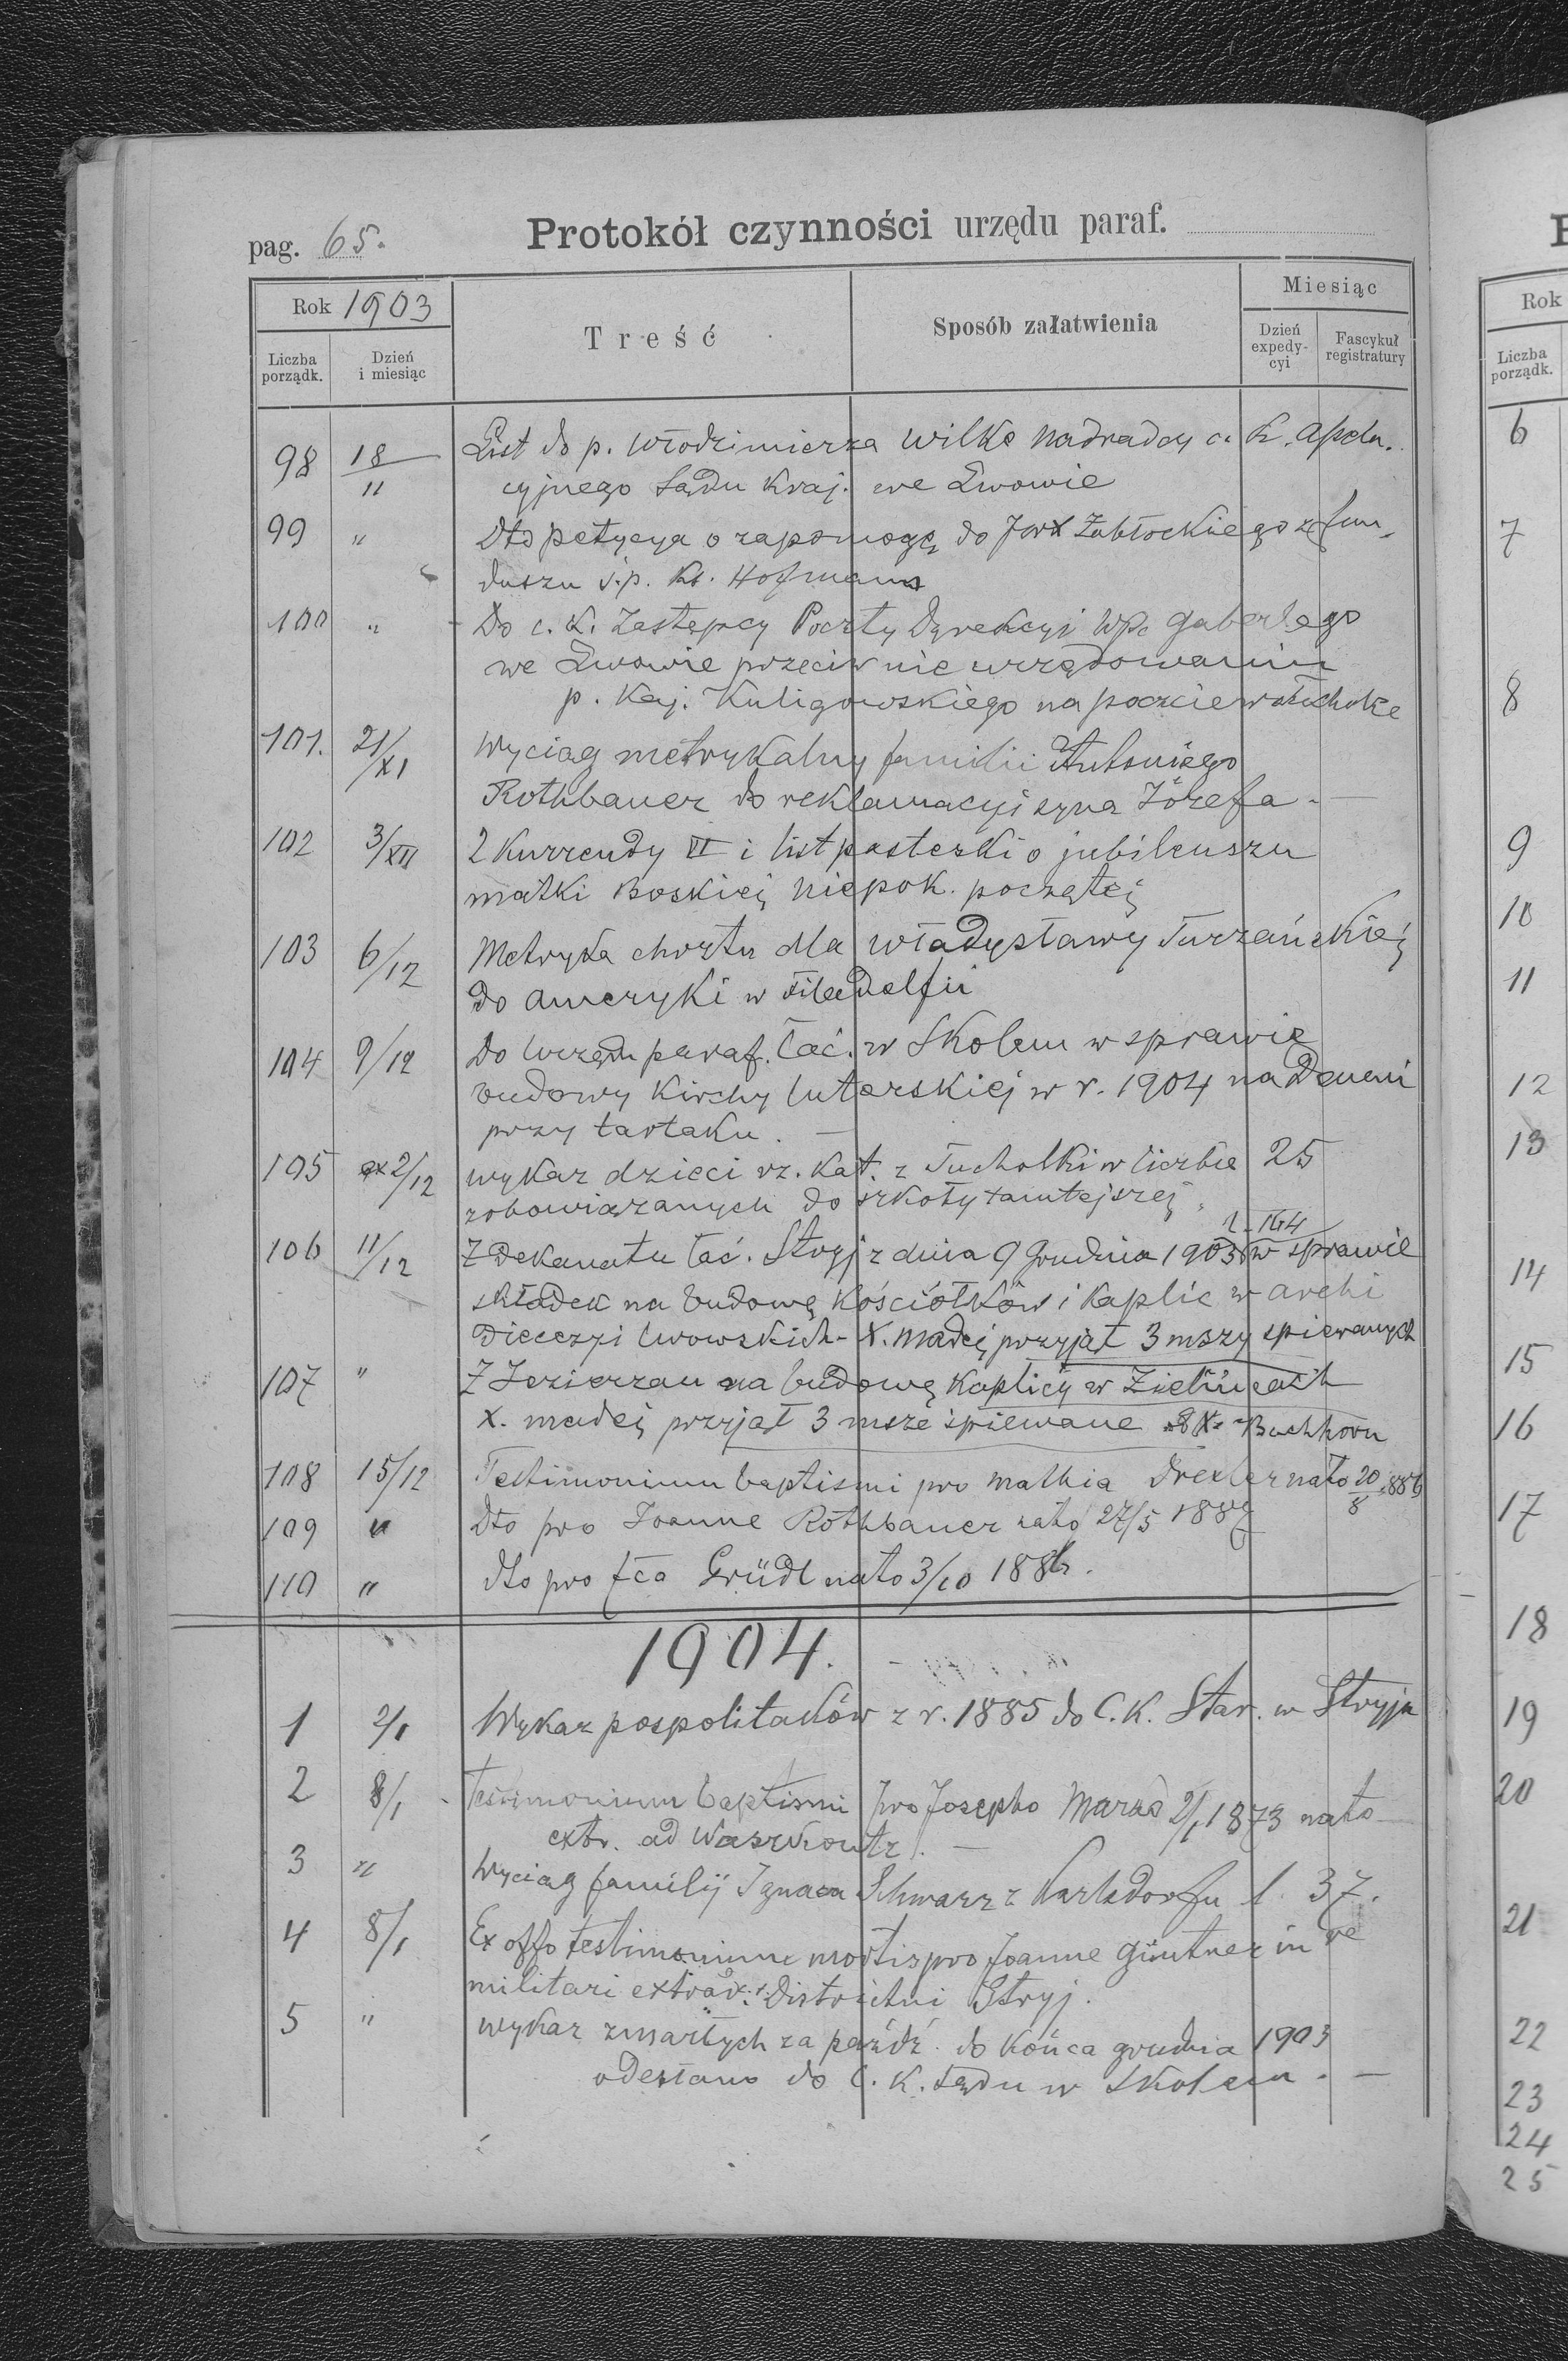 pag. 65.
Protokół czynności urzędu paraf.
Rok 1903
Treść
Sposób załatwienia
Miesiąc
Liczba porządk.
Dzień i miesiąc
Dzień expedycyi
Fascykuł registratury
98 18/11 List do p. Włodzimierza Wilke Nadradcy c. k. apela.
cyjnego Sądu Kraj. we Lwowie
99 " Dto petycya o zapomogę do Zabłockiego z fun-
duszu ś.p. Ks. Hofmana
100 " Do c. K. Zastępcy Poczty Dyrekcyi Wp. Gaberlego
we Lwowie przeciw nie urzędowaniu
p. Kaj. Kuligowskiego na poczcie w Tucholce
101. 21/XI Wyciąg metrykalny familii Antoniego
Rothbauer do reklamacyi syna Józefa. —
102 3/XII 2 Kurrendy VI i list pasterski o jubileuszu
matki Boskiej Niepok. poczętej
103 6/12 Metryka chrztu dla Władysławy Turzańskiej
do ameryki w Filadelfii
104 9/12 Do Urzędu paraf. łać. w Skolem w sprawie
budowy Kirchy luterskiej w r. 1904 na Demni
przy tartaku. —
105 ex 2/12 wykaz dzieci rz. Kat. z Tucholki w liczbie 25
zobowiązanych do szkoły tamtejszej.
106 11/12 Z Dekanatu łać. Stryj z dnia 9 Grudnia 1903 l. 164 w sprawie
składek na budowę Kościółków i Kaplic w archi
Diecezyi lwowskich - X. Madej przyjął 3 mszy śpiewanych
107 " Z Jezierzan na budowę Kaplicy w Zielińcach
X. Madej przyjął 3 msze śpiewane X. Buchhorn
108 15/12 Testimonium baptismi pro Mathia Drexler nato 20/8 1886
109 " Dto pro Joanne Rothbauer nato 27/5 1887
110 " dto pro fca Gründl nato 3/10 1886.
1904.
1 2/1 Wykaz pospolitaków z r. 1885 do C. K. Star. w Stryju
2 8/1 Testimonium baptismi pro Josepho Maras 2/1 1873 nato
extr. ad Waszkoutz. —
3 " Wyciąg familij Ignaca Schwarz z Karlsdorfu l. 37.
4 8/1 Ex offo testimonium mortis pro Joanne Güntner in re
militari extrad. Districtui Stryj.
5 " wykaz zmarłych za paźdź. do końca grudnia 1903
odesłano do C. K. Sądu w Skolem. —
Rok
Liczba porządk.
6
7
8
9
10
11
12
13
14
15
16
17
18
19
20
21
22
23
24
25